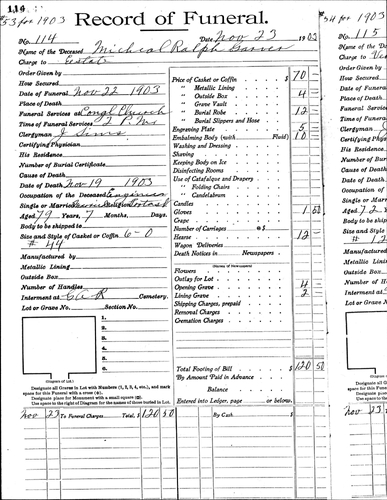 114
#53 for 1903
Record of Funeral.
No. 114 Date Nov 23 190
Name of the Deceased Micheal Ralph
Charge to Estate
Order Given by
How Secured
Date of Funeral Nov 22 1903
Place of Death
Funeral Services at Congl Church
Time of Funeral Services
Clergyman J Sims
Certifying Physician
His Residence
Number of Burial Certificate
Cause of Death
Date of Death Nov 19 1903
Occupation of the Deceased Engineer
Single or Married
Aged 79 Years, 7 Months, Days.
Body to be shipped to
Size and Style of Casket or Coffin 6-0
# 44
Manufactured by
Metallic Lining
Outside Box
Number of Handles
Interment at G A R Cemetery.
Lot or Grave No. Section No.
1.
2.
3.
4.
5.
6.
(Diagram of Lot.)
Designate all Graves in Lot with Numbers (1, 2, 3, 4, etc.), and mark
space for this Funeral with a cross (x).
Designate place for Monument with a small square (□).
Use space to the right of Diagram for the names of those buried in Lot.
Price of Casket or Coffin $ 70 -
" Metallic Lining
" Outside Box 4
" Grave Vault
" Burial Robe 12
" Burial Slippers and Hose
Engraving Plate 5
Embalming Body (with Fluid) 10
Washing and Dressing
Shaving
Keeping Body on Ice
Disinfecting Rooms
Use of Catafalque and Drapery
" Folding Chairs
" Candelabrum
Candles
Gloves 1 50
Crape
Number of Carriages @ $
Hearse 12 -
Wagon Deliveries
Death Notices in Newspapers
(Names of Newspapers)
Flowers
Outlay for Lot
Opening Grave 4 -
Lining Grave 2 -
Shipping Charges, prepaid
Removal Charges
Cremation Charges
Total Footing of Bill $ 120 50
By Amount Paid in Advance
Balance
Entered into Ledger, page or below.
Nov 23 To Funeral Charges Total, $ 120 50
By Cash $
#54 for 1903
No. 115
Name of the
Charge to
Order Given
How Secured
Date of Funeral
Place of Death
Funeral Services
Time of Funeral
Clergyman
Certifying
His Residence
Number of
Cause of Death
Date of Death
Occupation
Single or Ma
Aged 72
Body to be s
Size and Sty
# 12
Manufactur
Metallic Lin
Outside Box
Number of
Interment a
Lot or Grave
Designate all
space for this F
Designate pla
Use space to th
Nov 23